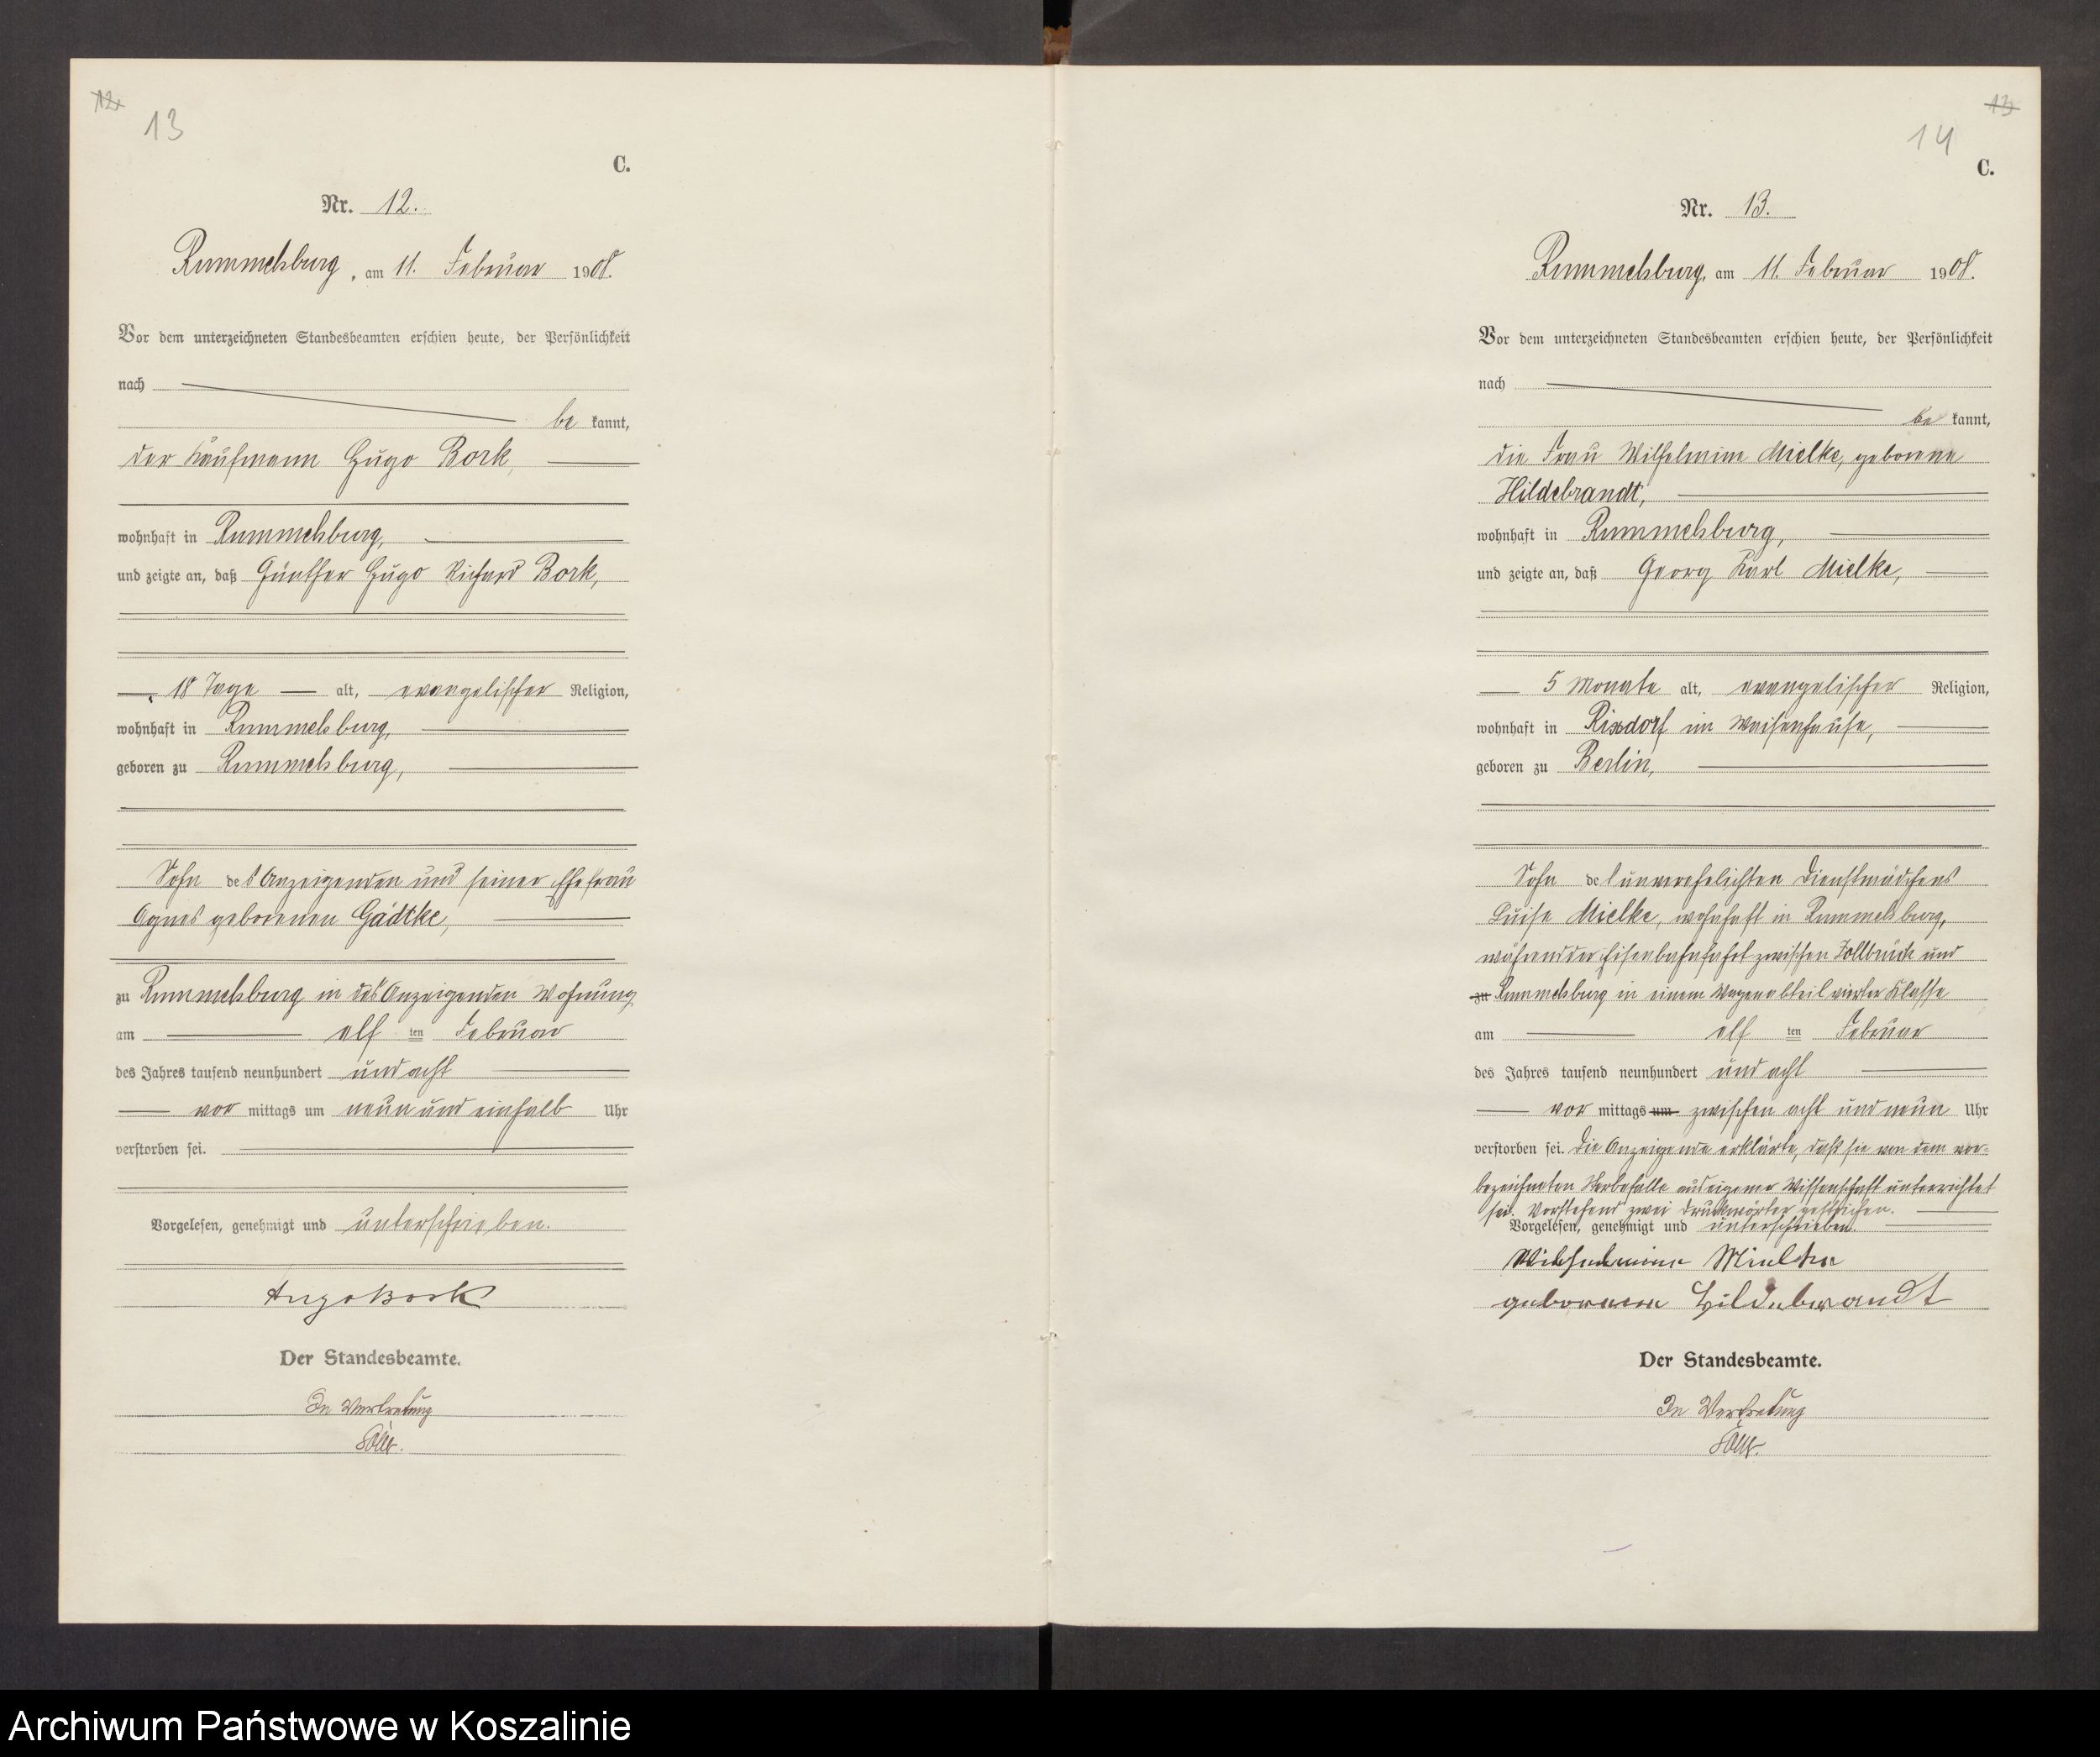 12.
13
C.
Nr. 12.
Rummelsburg, am 11. Februar 1908.
Vor dem unterzeichneten Standesbeamten erschien heute, der Persönlichkeit
nach
be kannt,
der Kaufmann Hugo Bork,
wohnhaft in Rummelsburg,
und zeigte an, daß Günther Hugo Richard Bork,
18 Tage alt, evangelischer Religion,
wohnhaft in Rummelsburg,
geboren zu Rummelsburg,
Sohn des Anzeigenden und seiner Ehefrau
Agnes geborenen Gädtke,
zu Rummelsburg in des Anzeigenden Wohnung
am elf ten Februar
des Jahres tausend neunhundert und acht
vor mittags um neun und einhalb Uhr
verstorben sei.
Vorgelesen, genehmigt und unterschrieben.
Hugo Bork
Der Standesbeamte.
In Vertretung
13
14
C.
Nr. 13.
Rummelsburg, am 11. Februar 1908.
Vor dem unterzeichneten Standesbeamten erschien heute, der Persönlichkeit
nach
be kannt,
die Frau Wilhelmine Mielke, geborene
Hildebrandt,
wohnhaft in Rummelsburg,
und zeigte an, daß Georg Karl Mielke,
5 Monate alt, evangelischer Religion,
wohnhaft in Rixdorf im Waisenhause,
geboren zu Berlin,
Sohn des unverehelichten Dienstmädchens
Luise Mielke, wohnhaft in Rummelsburg,
während der Eisenbahnfahrt zwischen Zollbrück und
zu Rummelsburg in einem Wagenabteil vierter Klasse
am elf ten Februar
des Jahres tausend neunhundert und acht
vor mittags um zwischen acht und neun Uhr
verstorben sei. Die Anzeigende erklärte, daß sie von dem vor-
bezeichneten Sterbefalle aus eigener Wissenschaft unterrichtet
sei. Vorstehend zwei Druckwörter gestrichen.
Vorgelesen, genehmigt und unterschrieben.
Wilhelmine Mielke
geborene Hildebrandt
Der Standesbeamte.
In Vertretung
Archiwum Państwowe w Koszalinie